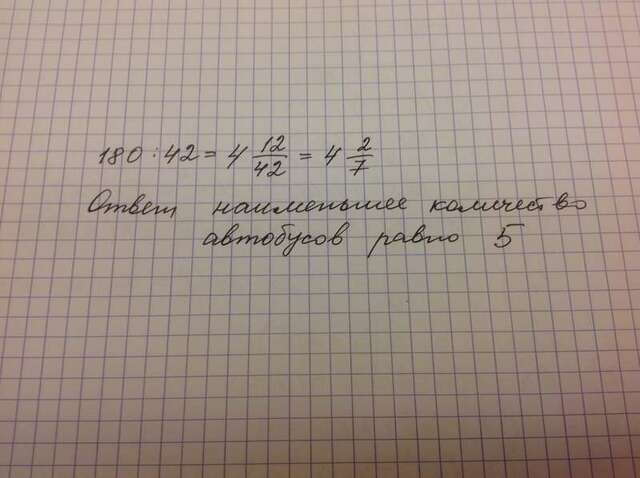 180 : 42 = 4 12/42 = 4 2/7
Ответ наименьшее количество
автобусов равно 5